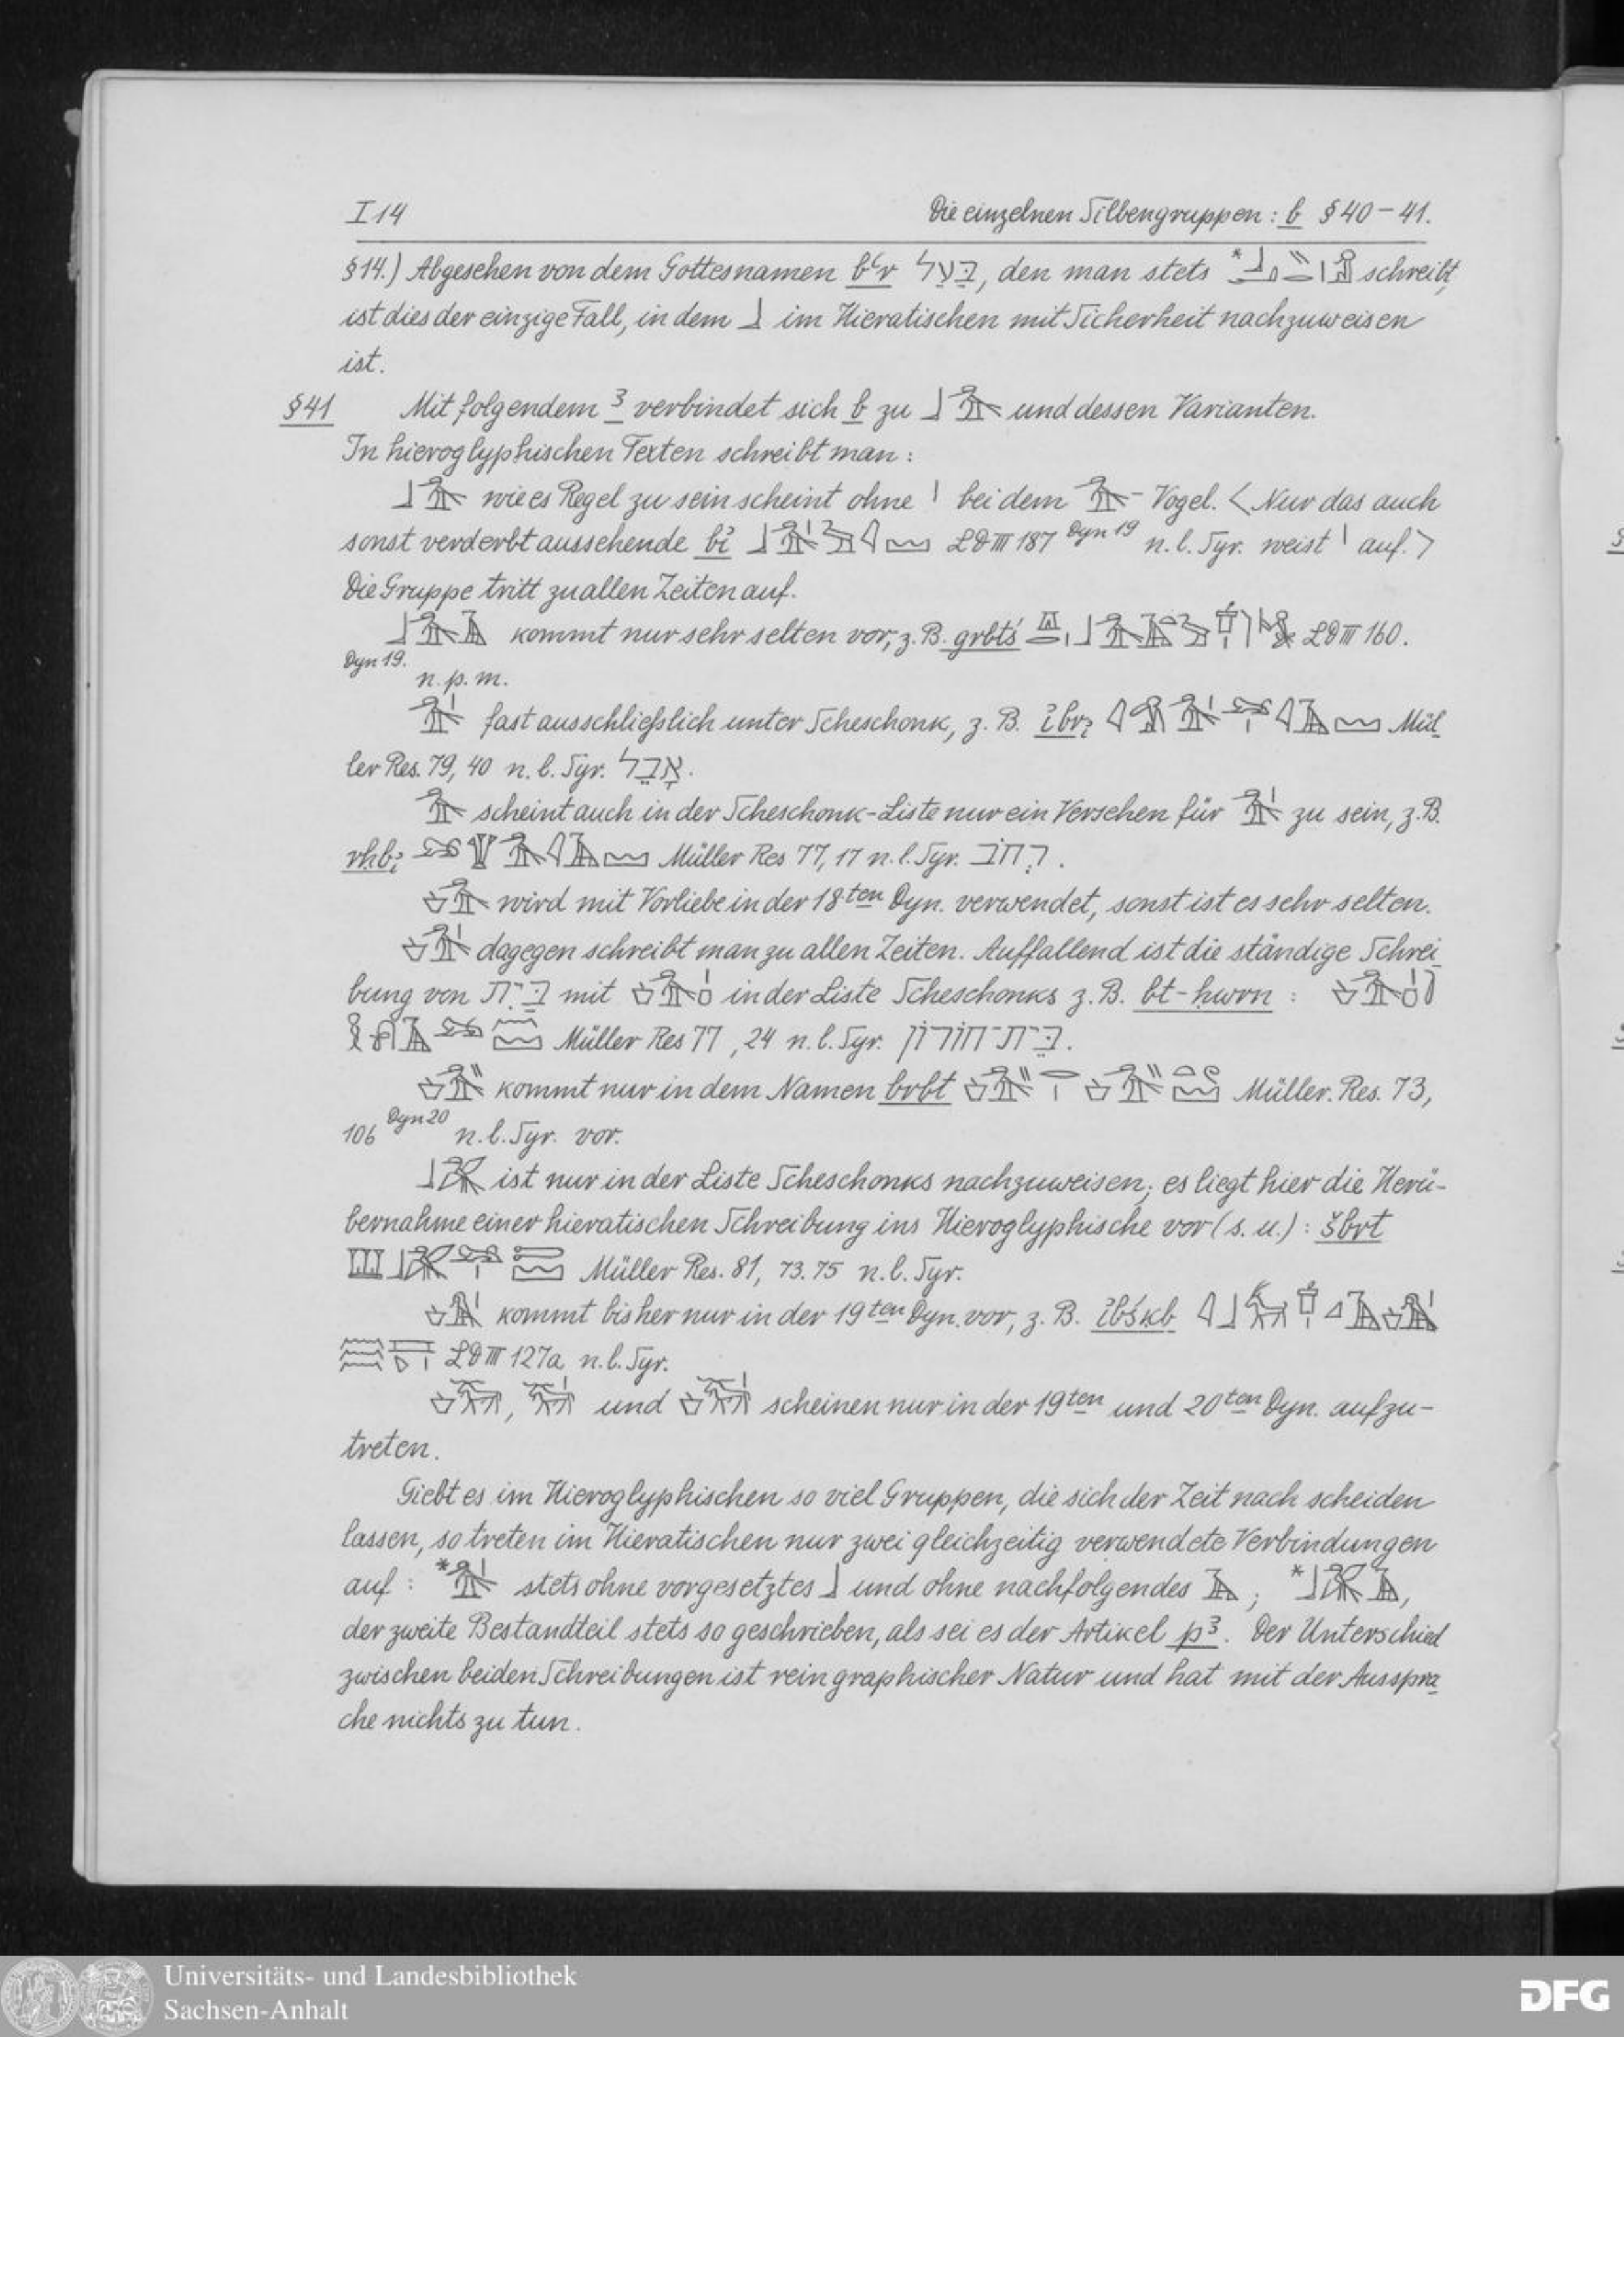 I 14 Die einzelnen Silbengruppen: b § 40 – 41.
§ 14.) Abgesehen von dem Gottesnamen bꜥr בַּעַל, den man stets * schreibt,
ist dies der einzige Fall, in dem 𓃀 im Hieratischen mit Sicherheit nachzuweisen
ist.
§ 41 Mit folgendem ꜣ verbindet sich b zu 𓃀𓅡 und dessen Varianten.
In hieroglyphischen Texten schreibt man:
𓃀𓅡 wie es Regel zu sein scheint ohne 𓏤 bei dem 𓅡- Vogel. < Nur das auch
sonst verderbt aussehende LD III 187 Dyn 19 n. l. Syr. weist 𓏤 auf. >
Die Gruppe tritt zu allen Zeiten auf.
𓃀𓅡𓄿 kommt nur sehr selten vor, z. B. grbtś LD III 160.
Dyn 19.
n. p. m.
𓅡𓏤 fast ausschließlich unter Scheschonk, z. B. Mül
ler Res. 79, 40 n. l. Syr. אָבֵל.
𓅡 scheint auch in der Scheschonk-Liste nur ein Versehen für 𓅡𓏤 zu sein, z. B.
Müller Res 77, 17 n. l. Syr. רחֹב.
wird mit Vorliebe in der 18ten Dyn. verwendet, sonst ist es sehr selten.
dagegen schreibt man zu allen Zeiten. Auffallend ist die ständige Schrei
bung von בֵּית mit in der Liste Scheschonks z. B. bt-ḥwrn :
Müller Res 77, 24 n. l. Syr. בֵּית־חוֹרוֹן.
kommt nur in dem Namen brbt Müller. Res. 73,
106 Dyn 20 n. l. Syr. vor.
ist nur in der Liste Scheschonks nachzuweisen; es liegt hier die Herü-
bernahme einer hieratischen Schreibung ins Hieroglyphische vor (s. u.) : šbrt
Müller Res. 81, 73. 75 n. l. Syr.
kommt bisher nur in der 19ten Dyn. vor, z. B.
LD III 127a n. l. Syr.
, und scheinen nur in der 19ten und 20ten Dyn. aufzu-
treten.
Giebt es im Hieroglyphischen so viel Gruppen, die sich der Zeit nach scheiden
lassen, so treten im Hieratischen nur zwei gleichzeitig verwendete Verbindungen
auf : *𓅡𓏤 stets ohne vorgesetztes 𓃀 und ohne nachfolgendes 𓄿 ; *𓃀𓅮𓄿,
der zweite Bestandteil stets so geschrieben, als sei es der Artikel pꜣ. Der Unterschied
zwischen beiden Schreibungen ist rein graphischer Natur und hat mit der Ausspra
che nichts zu tun.
Universitäts- und Landesbibliothek
Sachsen-Anhalt
DFG